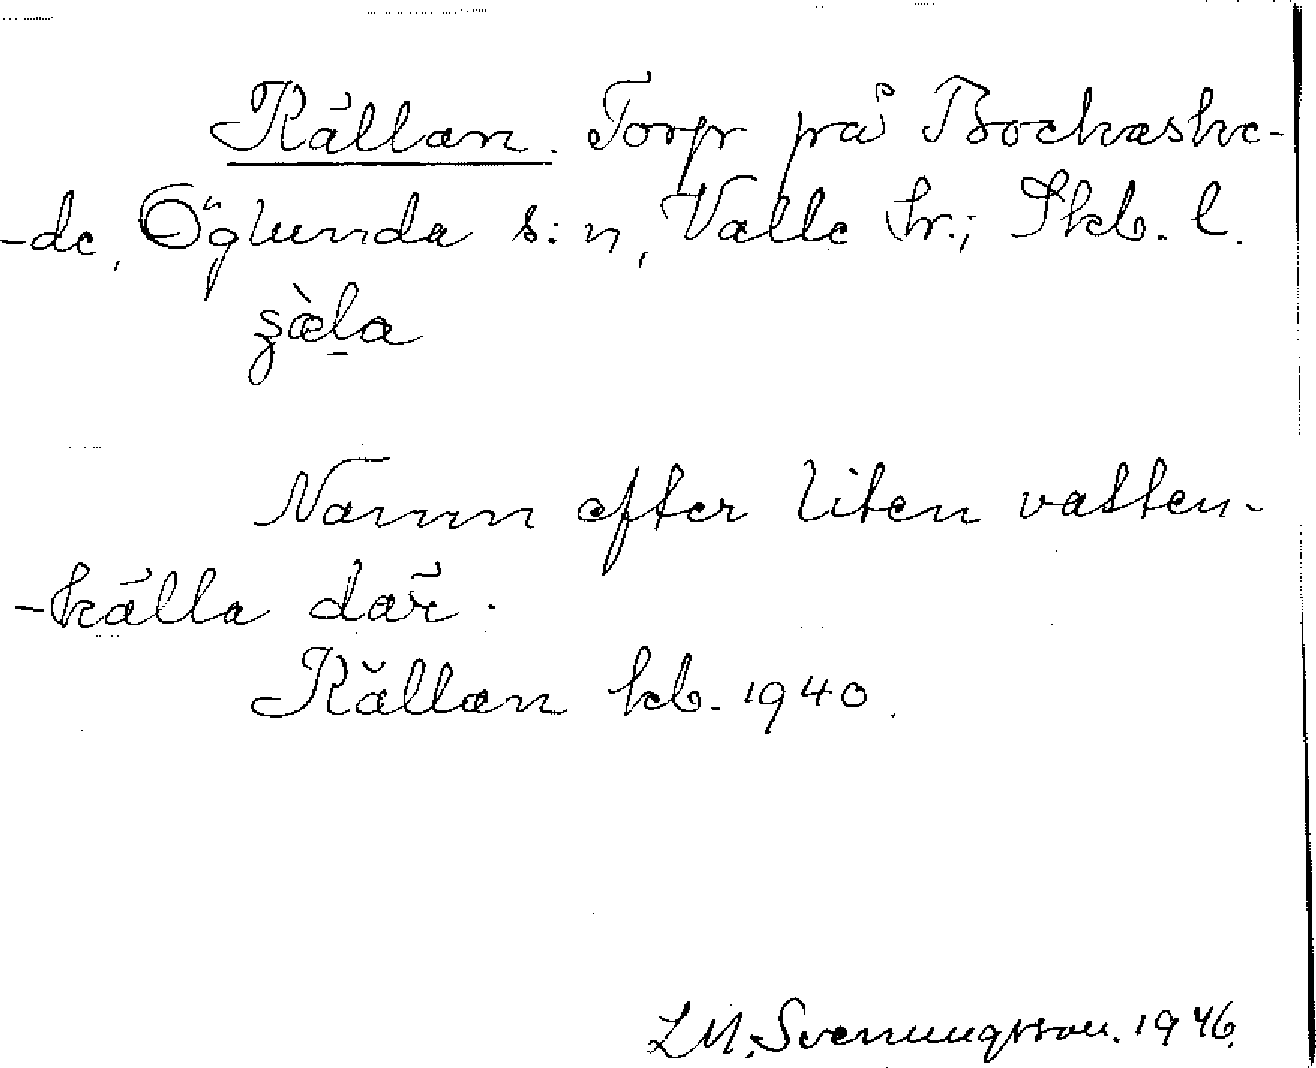 Källan. Torp på Bockaske-
-de, Öglunda s:n, Valle hr.; Skb. l.
Namn efter liten vatten-
-källa där.
Källan kb. 1940.
L.M. Svenungsson. 1946.